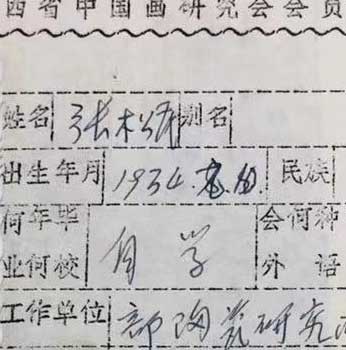 西省中国画研究会会员
姓名 张松 别名
出生年月 1934. 民族
何年毕业何校 自学 会何种外语
工作单位 部陶瓷研究